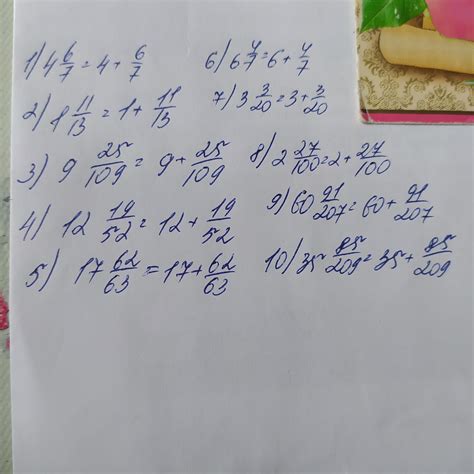 1) 4 6/7 = 4 + 6/7
2) 1 11/13 = 1 + 11/13
3) 9 25/109 = 9 + 25/109
4) 12 19/52 = 12 + 19/52
5) 17 62/63 = 17 + 62/63
6) 6 4/7 = 6 + 4/7
7) 3 3/20 = 3 + 3/20
8) 2 27/100 = 2 + 27/100
9) 60 91/207 = 60 + 91/207
10) 35 85/209 = 35 + 85/209